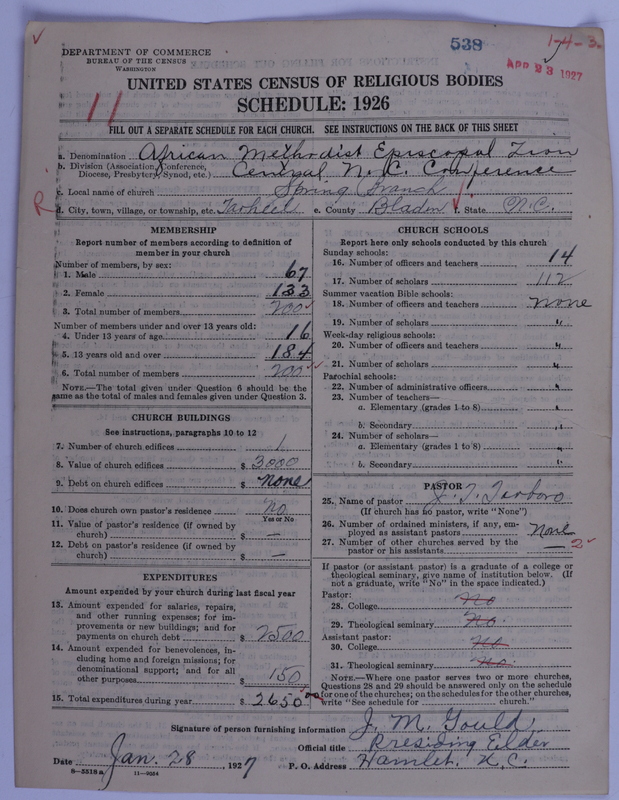 538
1-4-3.
APR 23 1927
DEPARTMENT OF COMMERCE
BUREAU OF THE CENSUS
WASHINGTON
UNITED STATES CENSUS OF RELIGIOUS BODIES
SCHEDULE: 1926
11
FILL OUT A SEPARATE SCHEDULE FOR EACH CHURCH. SEE INSTRUCTIONS ON THE BACK OF THIS SHEET
a. Denomination African Methodist Episcopal Zion
b. Division (Association, Conference, Diocese, Presbytery, Synod, etc.) Central N.C. Conference
c. Local name of church Spring Branch
R
d. City, town, village, or township, etc. Tarheel e. County Bladen f. State N.C.
MEMBERSHIP
Report number of members according to definition of
member in your church
Number of members, by sex:
1. Male 67
2. Female 133
3. Total number of members 200
Number of members under and over 13 years old:
4. Under 13 years of age 16
5. 13 years old and over 184
6. Total number of members 200
NOTE.—The total given under Question 6 should be the
same as the total of males and females given under Question 3.
CHURCH BUILDINGS
See instructions, paragraphs 10 to 12
7. Number of church edifices 1
8. Value of church edifices $ 3000
9. Debt on church edifices $ None
10. Does church own pastor's residence No
Yes or No
11. Value of pastor's residence (if owned by
church) $ —
12. Debt on pastor's residence (if owned by
church) $ —
EXPENDITURES
Amount expended by your church during last fiscal year
13. Amount expended for salaries, repairs,
and other running expenses; for im-
provements or new buildings; and for
payments on church debt $ 2500
14. Amount expended for benevolences, in-
cluding home and foreign missions; for
denominational support; and for all
other purposes $ 150
15. Total expenditures during year $ 2650
CHURCH SCHOOLS
Report here only schools conducted by this church
Sunday schools:
16. Number of officers and teachers 14
17. Number of scholars 112
Summer vacation Bible schools:
18. Number of officers and teachers None
19. Number of scholars "
Week-day religious schools:
20. Number of officers and teachers "
21. Number of scholars "
Parochial schools:
22. Number of administrative officers "
23. Number of teachers—
a. Elementary (grades 1 to 8) "
b. Secondary "
24. Number of scholars—
a. Elementary (grades 1 to 8) "
b. Secondary "
PASTOR
25. Name of pastor J. T. Tarboro
(If church has no pastor, write "None")
26. Number of ordained ministers, if any, em-
ployed as assistant pastors None
27. Number of other churches served by the
pastor or his assistants — 2
If pastor (or assistant pastor) is a graduate of a college or
theological seminary, give name of institution below. (If
not a graduate, write "No" in the space indicated.)
Pastor:
28. College No
29. Theological seminary No
Assistant pastor:
30. College No
31. Theological seminary No
NOTE.—Where one pastor serves two or more churches,
Questions 28 and 29 should be answered only on the schedule
for one of the churches; on the schedules for the other churches,
write "See schedule for church."
Signature of person furnishing information J. M. Gould
Official title Presiding Elder
Date Jan. 28, 1927 P. O. Address Hamlet, N.C.
8-5518 a 11-9064